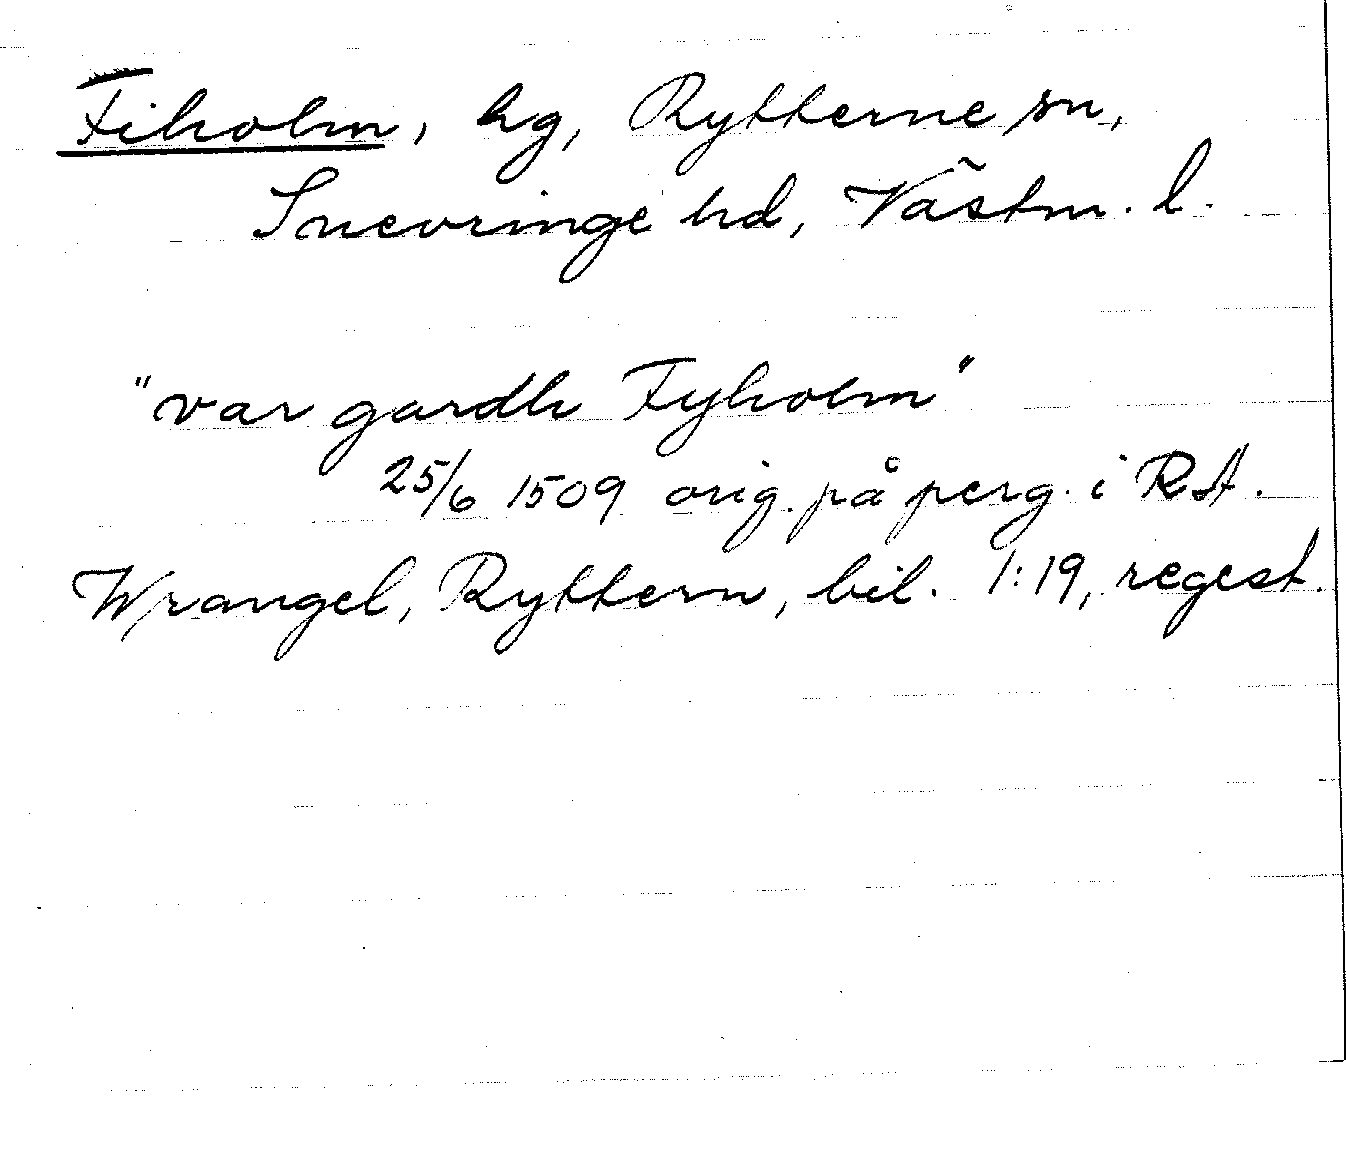 Fiholm, hg, Rytterne sn,
Snevringe hd, Västm. l.
"var gardh Fyholm"
25/6 1509 orig. på perg. i RA.
Wrangel, Ryttern, bil. 1:19, regest.